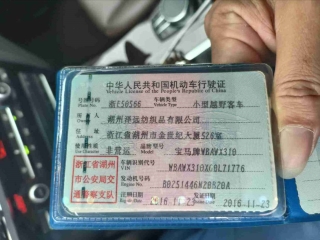 中华人民共和国机动车行驶证
Vehicle License of the People's Republic of China
号牌号码 浙E50566 车辆类型 小型越野客车
湖州泽远纺织品有限公司
浙江省湖州市金世纪大厦526室
非营运 品牌型号 宝马牌WBAWX310
浙江省湖州
市公安局交
通警察支队
车辆识别代号 WBAWX310XC0L71776
VIN
发动机号码 B0251446N20B20A
Engine No.
2016-11-23 发证日期 2016-11-23